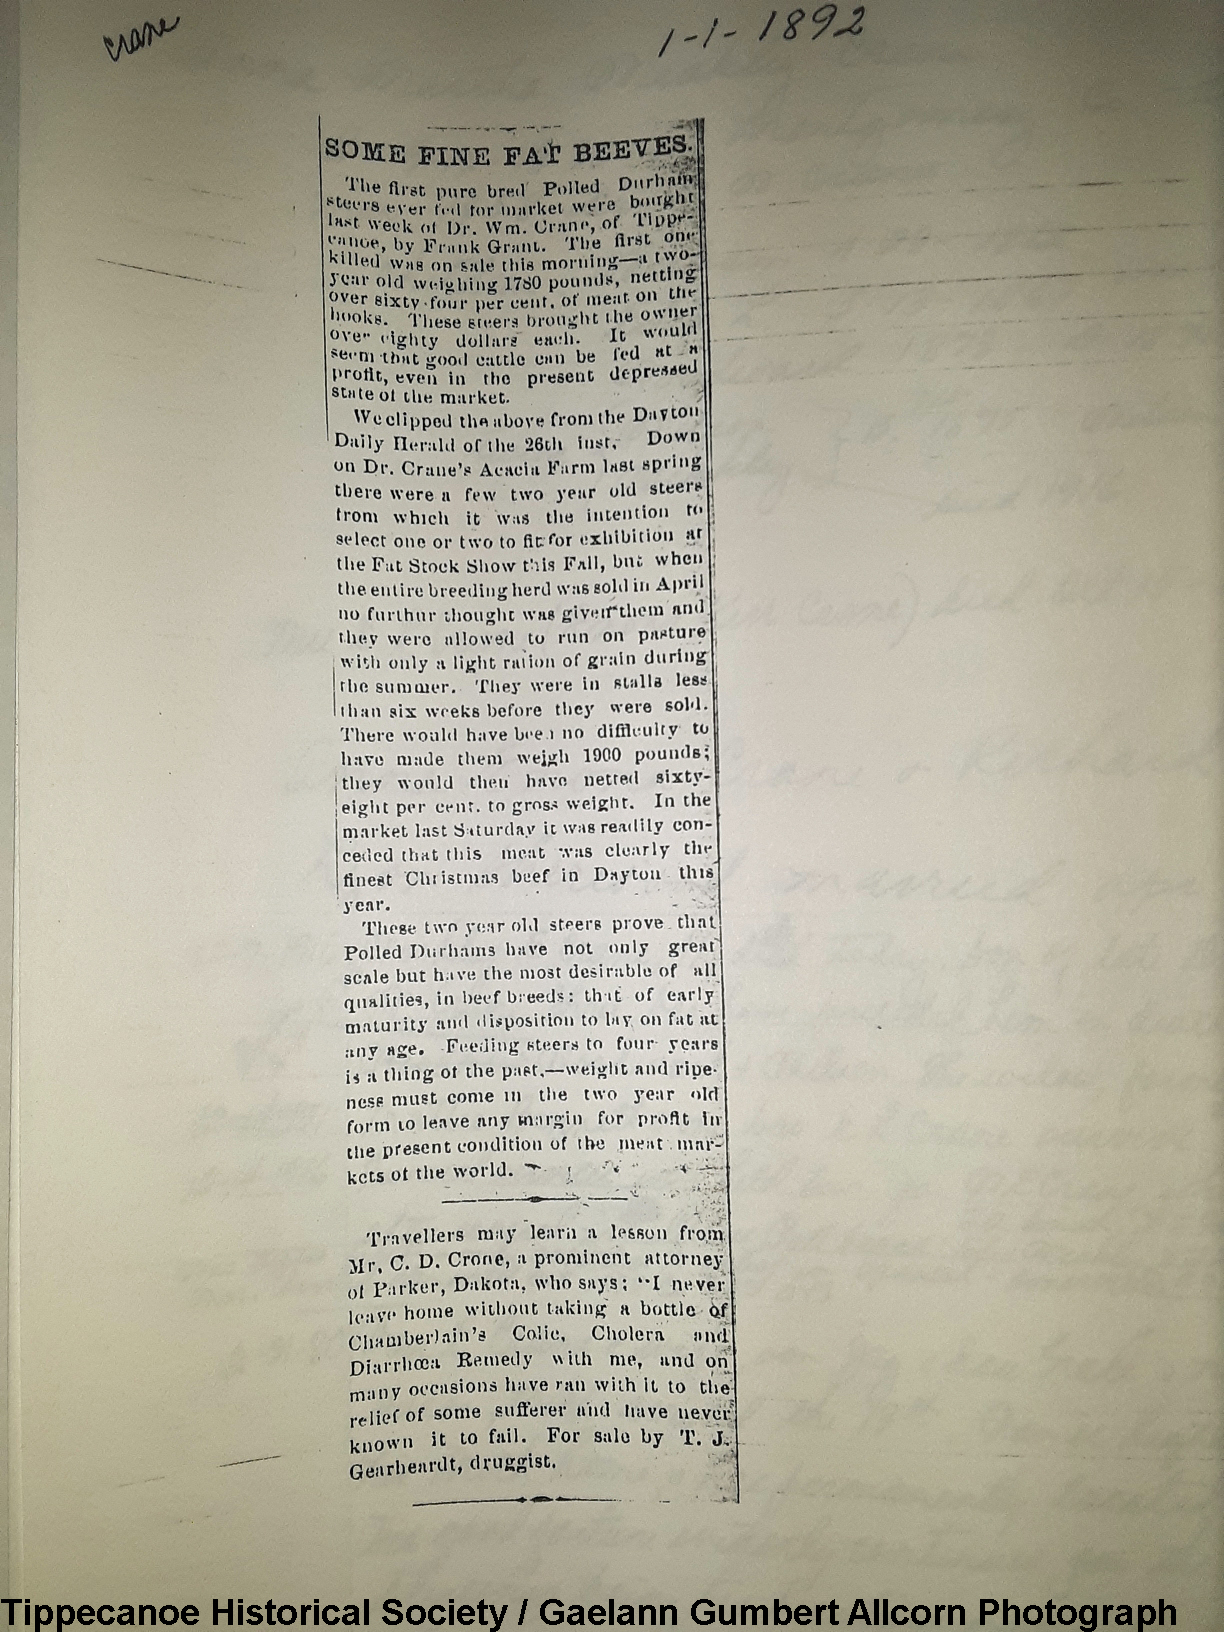 crane
1-1-1892
SOME FINE FAT BEEVES.
The first pure bred Polled Durham
steers ever fed for market were bought
last week of Dr. Wm. Crane, of Tippe-
canoe, by Frank Grant. The first one
killed was on sale this morning—a two-
year old weighing 1780 pounds, netting
over sixty-four per cent. of meat on the
hooks. These steers brought the owner
over eighty dollars each. It would
seem that good cattle can be fed at a
profit, even in the present depressed
state of the market.
We clipped the above from the Dayton
Daily Herald of the 26th inst. Down
on Dr. Crane's Acacia Farm last spring
there were a few two year old steers
from which it was the intention to
select one or two to fit for exhibition at
the Fat Stock Show this Fall, but when
the entire breeding herd was sold in April
no furthur thought was given them and
they were allowed to run on pasture
with only a light ration of grain during
the summer. They were in stalls less
than six weeks before they were sold.
There would have been no difficulty to
have made them weigh 1900 pounds;
they would then have netted sixty-
eight per cent. to gross weight. In the
market last Saturday it was readily con-
ceded that this meat was clearly the
finest Christmas beef in Dayton this
year.
These two year old steers prove that
Polled Durhams have not only great
scale but have the most desirable of all
qualities, in beef breeds: that of early
maturity and disposition to lay on fat at
any age. Feeding steers to four years
is a thing of the past,—weight and ripe-
ness must come in the two year old
form to leave any margin for profit in
the present condition of the meat mar-
kets of the world.
Travellers may learn a lesson from
Mr. C. D. Crone, a prominent attorney
of Parker, Dakota, who says: "I never
leave home without taking a bottle of
Chamberlain's Colic, Cholera and
Diarrhœa Remedy with me, and on
many occasions have ran with it to the
relief of some sufferer and have never
known it to fail. For sale by T. J.
Gearheardt, druggist.
Tippecanoe Historical Society / Gaelann Gumbert Allcorn Photograph